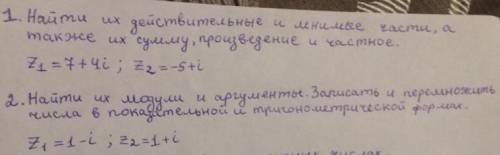 1. Найти их действительные и мнимые части, а
также их сумму, произведение и частное.
Z₁ = 7+4i ; Z₂ = -5+i
2. Найти их модули и аргументы. Записать и перемножить
числа в показательной и тригонометрической формах.
Z₁ = 1-i ; z₂ = 1+i